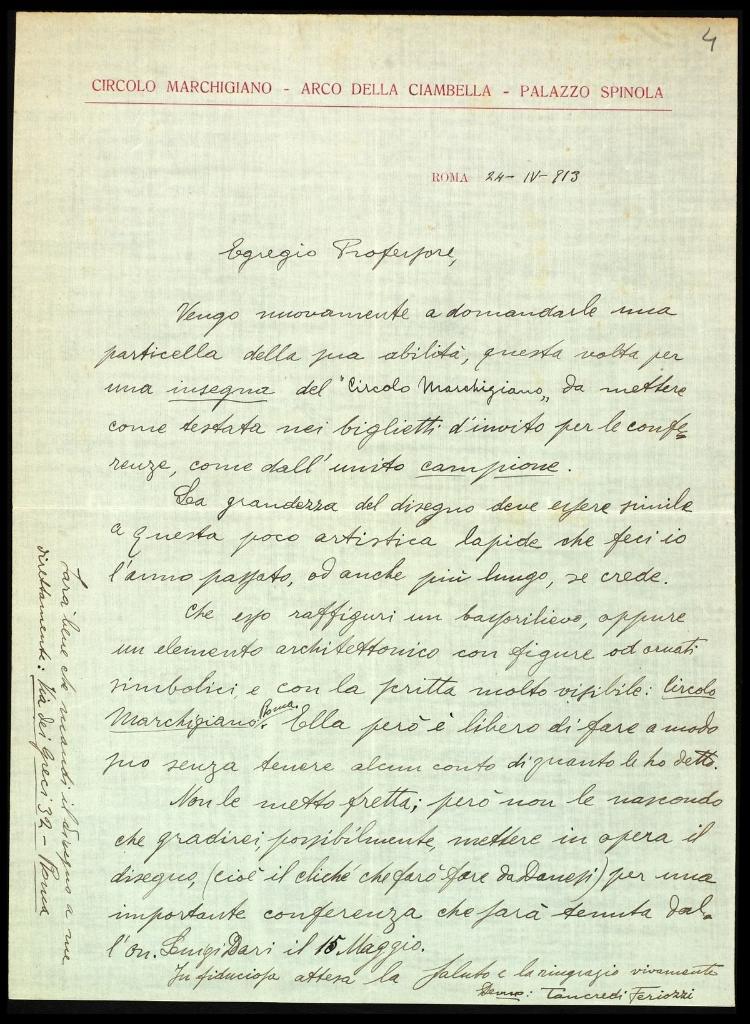 4
CIRCOLO MARCHIGIANO - ARCO DELLA CIAMBELLA - PALAZZO SPINOLA
ROMA 24-IV-913
Egregio Professore,
Vengo nuovamente a domandarle una
particella della sua abilità, questa volta per
una insegna del "Circolo Marchigiano„ da mettere
come testata nei biglietti d'invito per le confe-
renze, come dall'unito campione.
La grandezza del disegno deve essere simile
a questa poco artistica lapide che feci io
l'anno passato, od anche più lungo, se crede.
Che esso raffiguri un bassorilievo, oppure
un elemento architettonico con figure od ornati
simbolici, e con la scritta molto visibile: Circolo
Marchigiano Roma. Ella però è libero di fare a modo
suo senza tenere alcun conto di quanto le ho detto.
Non le metto fretta; però non le nascondo
che gradirei, possibilmente, mettere in opera il
disegno, (cioè il cliché che farò fare da Danesi) per una
importante conferenza che sarà tenuta dal-
l'on. Luigi Dari il 15 Maggio.
In fiduciosa attesa la saluto e la ringrazio vivamente
Devmo: Tancredi Feriozzi
Farà bene che mandi il disegno a me
direttamente: Via dei Greci 32 - Roma